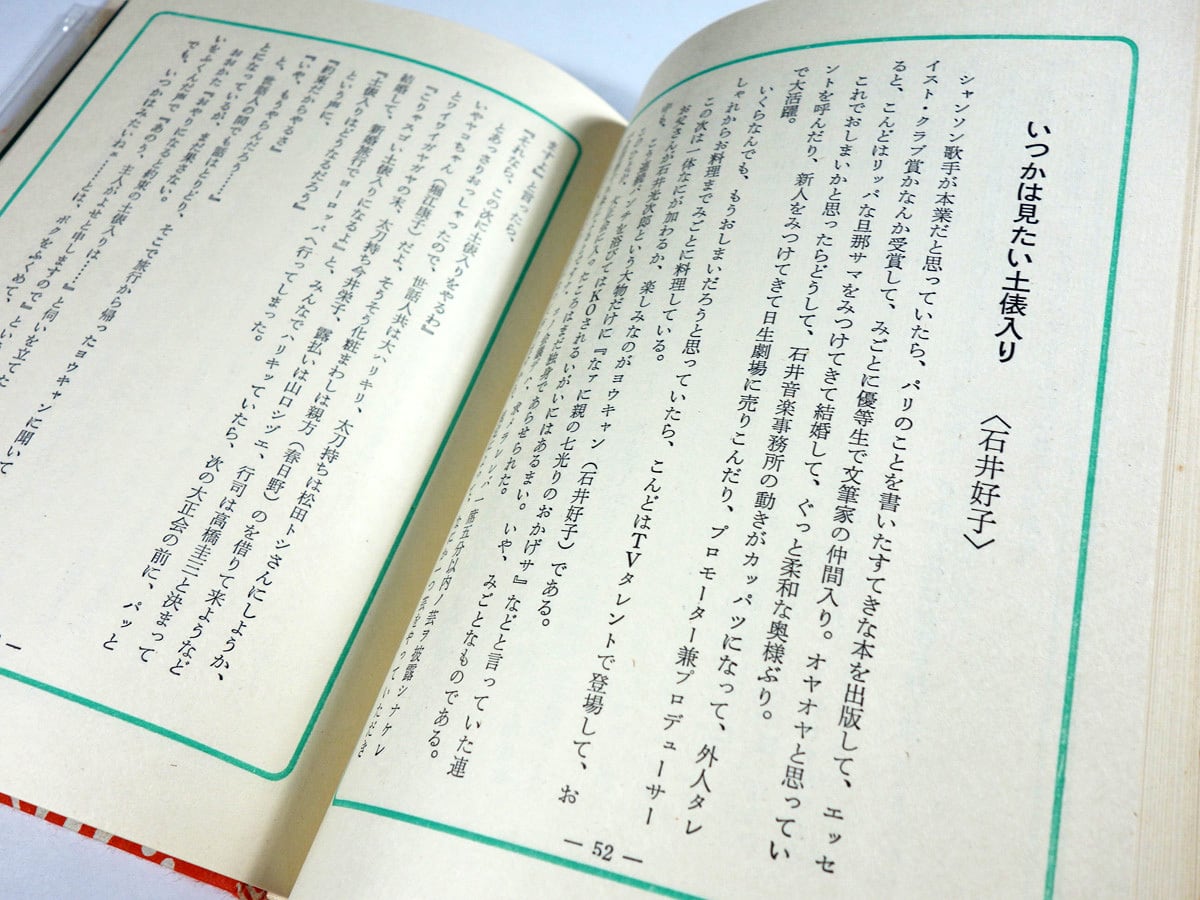 いつかは見たい土俵入り
〈石井好子〉
シャンソン歌手が本業だと思っていたら、パリのことを書いたすてきな本を出版して、エッセ
イスト・クラブ賞かなんか受賞して、みごとに優等生で文筆家の仲間入り。オヤオヤと思ってい
ると、こんどはリッパな旦那サマをみつけてきて結婚して、ぐっと柔和な奥様ぶり。
これでおしまいかと思ったらどうして、石井音楽事務所の動きがカッパツになって、外人タレ
ントを呼んだり、新人をみつけてきて日生劇場に売りこんだり、プロモーター兼プロデューサー
で大活躍。
いくらなんでも、もうおしまいだろうと思っていたら、こんどはTVタレントで登場して、お
しゃれからお料理までみごとに料理している。
この次は一体なにが加わるか、楽しみなのがヨウキャン（石井好子）である。
お父さんが石井光次郎という大物だけに『なァに親の七光りのおかげサ』などと言っていた連
パンチを浴びてはKOされるいがいにはあるまい。いや、みごとなものである。
― 52 ―
ますよ』と言ったら、
『それなら、この次に土俵入りをやるわ』
とあっさりおっしゃったので、世話人共は大ハリキリ、太刀持ちは松田トシさんにしようか、
いや、チちゃん（堀江旗子）だよ、そうそう化粧まわしは親方（春日野）のを借りて来ようなど
とワイワイガヤガヤの末、太刀持ち今井栄子、露払いは山口シヅエ、行司は高橋圭三と決まって
『こりゃスゴイ土俵入りになるよ』と、みんなでハリキッていたら、次の大正会の前に、パッと
結婚して、新婚旅行でヨーロッパへ行ってしまった。
『土俵入りはどうなるだろう』
という声に、
『約束だからやるさ』
『いや、もうやらんだろう……』
と、世話人の間でも話はとりどり、
とになっているが、まだ果さない。そこで旅行から帰ったヨウキャンに聞いて
『あのう、お約束の土俵入りは……』と伺いを立てた